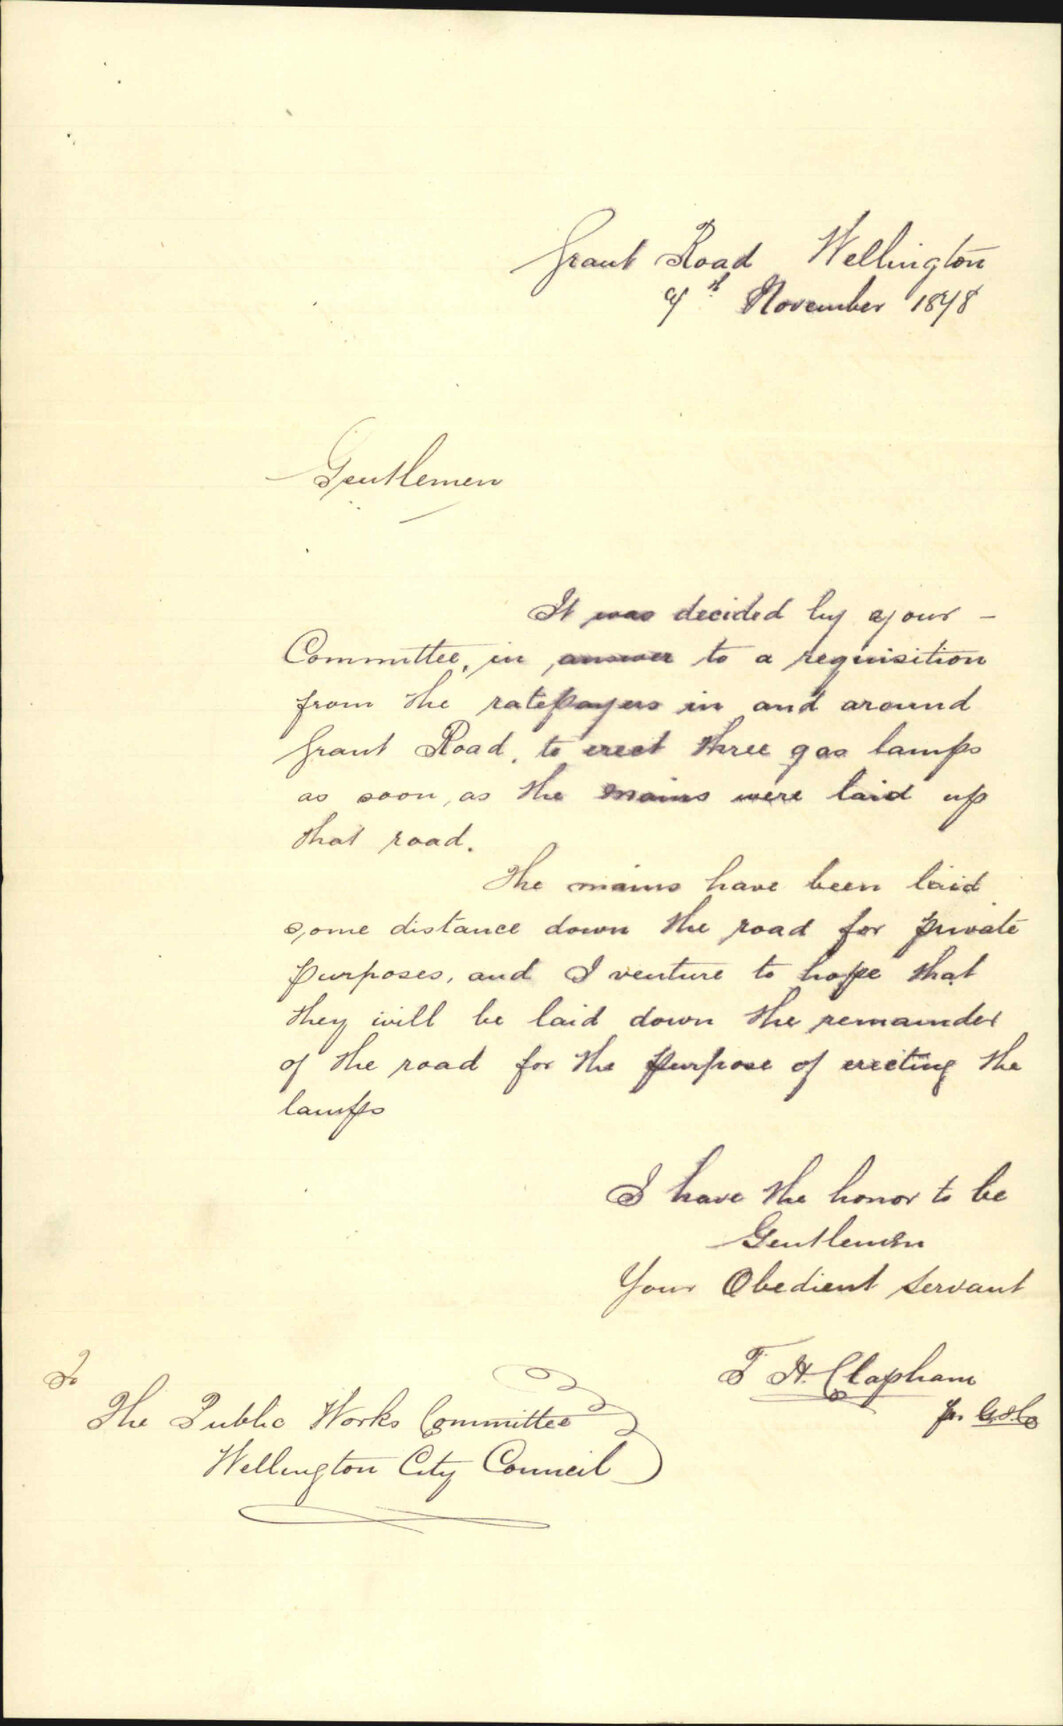 Grant Road Wellington
7th November 1878
Gentlemen
It was decided by your -
Committee, in answer to a requisition
from the ratepayers in and around
Grant Road, to erect three gas lamps
as soon, as the mains were laid up
that road.
The mains have been laid
some distance down the road for private
purposes, and I venture to hope that
they will be laid down the remainder
of the road for the purpose of erecting the
lamps
I have the honor to be
Gentlemen
Your Obedient Servant
T. H. Clapham
for
To
The Public Works Committee
Wellington City Council